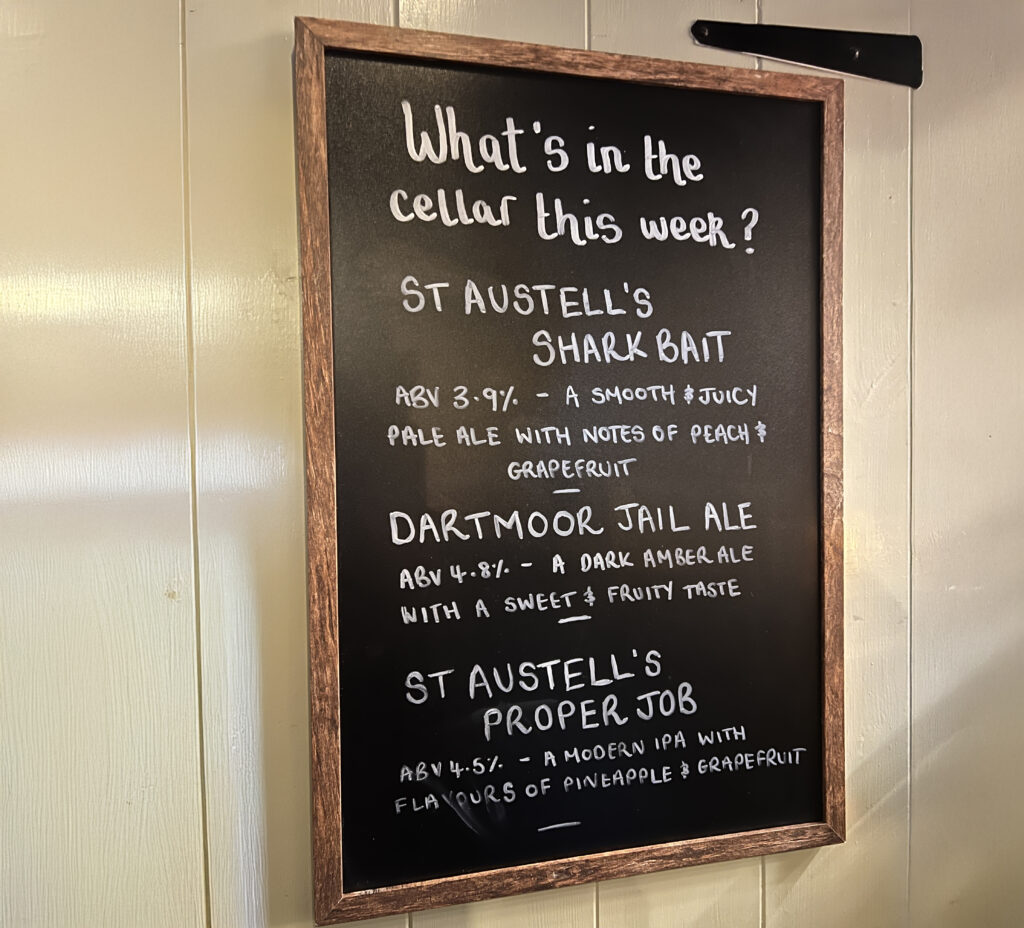 What's in the
cellar this week?
ST AUSTELL'S
SHARK BAIT
ABV 3.9% - A SMOOTH & JUICY
PALE ALE WITH NOTES OF PEACH &
GRAPEFRUIT
DARTMOOR JAIL ALE
ABV 4.8% - A DARK AMBER ALE
WITH A SWEET & FRUITY TASTE
ST AUSTELL'S
PROPER JOB
ABV 4.5% - A MODERN IPA WITH
FLAVOURS OF PINEAPPLE & GRAPEFRUIT